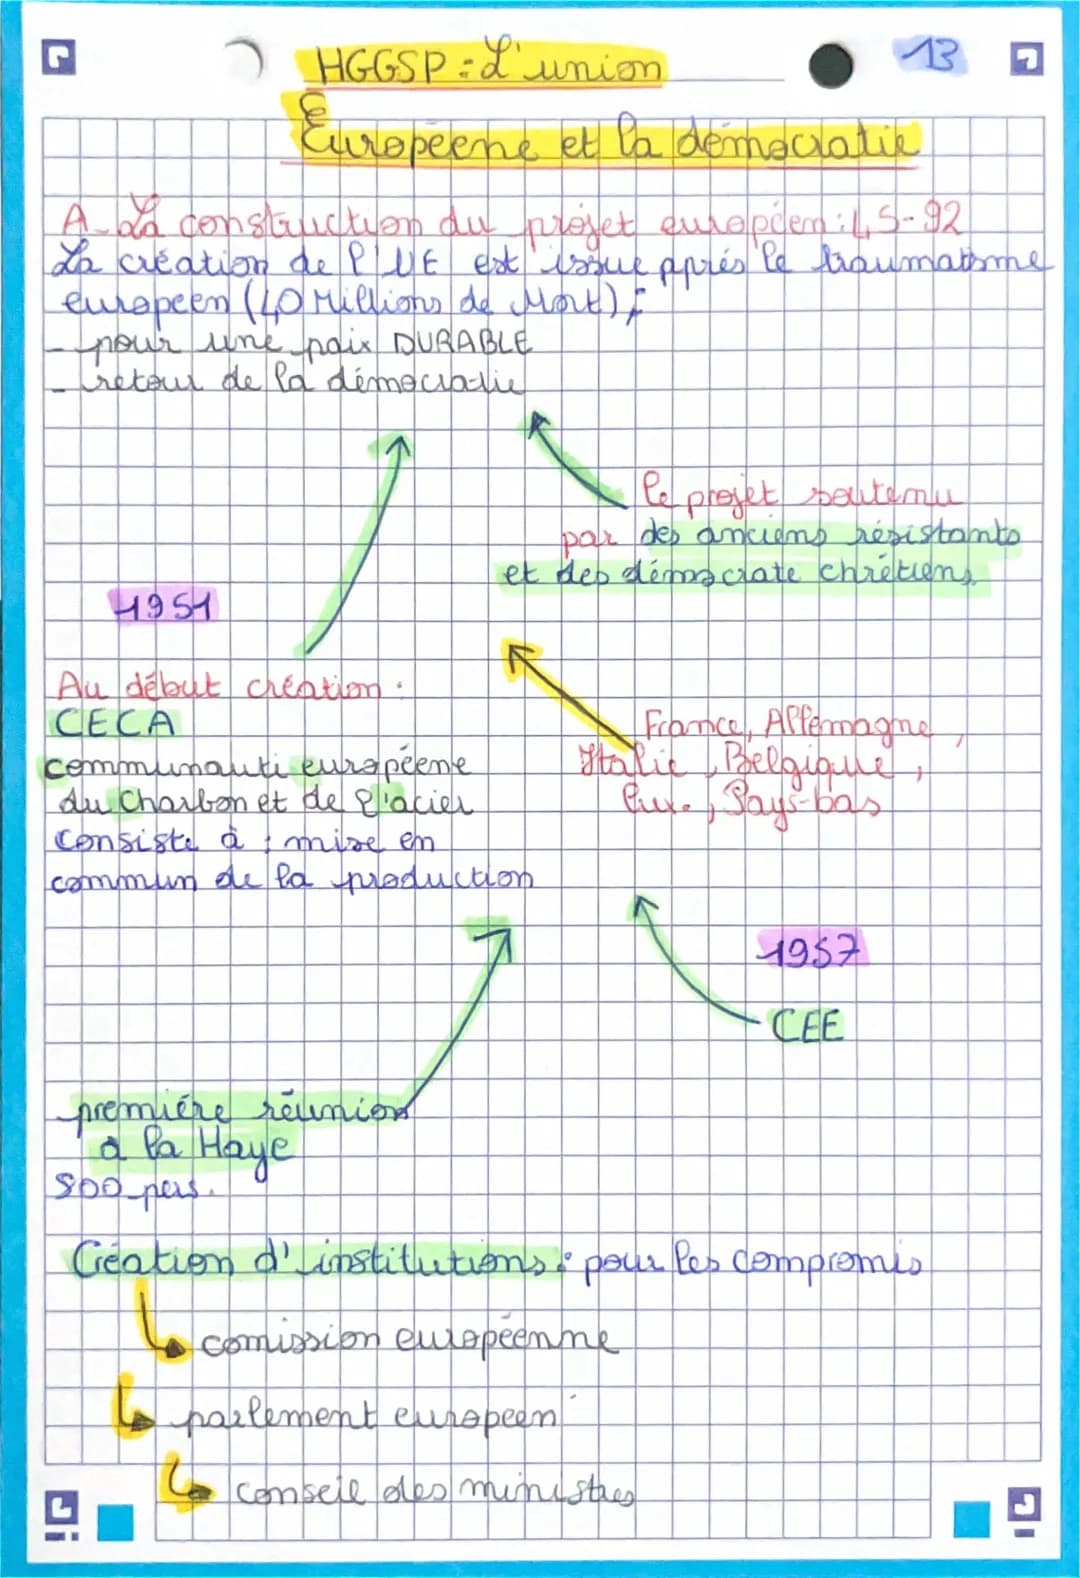 HGGSP : L'union
13
Européene et la démocratie
A - La construction du projet européen : 45-92
La création de l'UE est issue après le traumatisme
européen (40 Millions de Mort) ;
- pour une paix DURABLE
- retour de la démocratie
le projet soutenu
par des anciens résistants
et des démocrate chrétiens
1951
Au début création :
CECA
communauti européene
du Charbon et de l'acier
Consiste à : mise en
commun de la production
France, Allemagne,
Italie, Belgique,
Lux., Pays-bas
1957
CEE
première réunion
à la Haye
800 pers.
Création d'institutions : pour les compromis
comission européenne
parlement européen
conseil des ministres